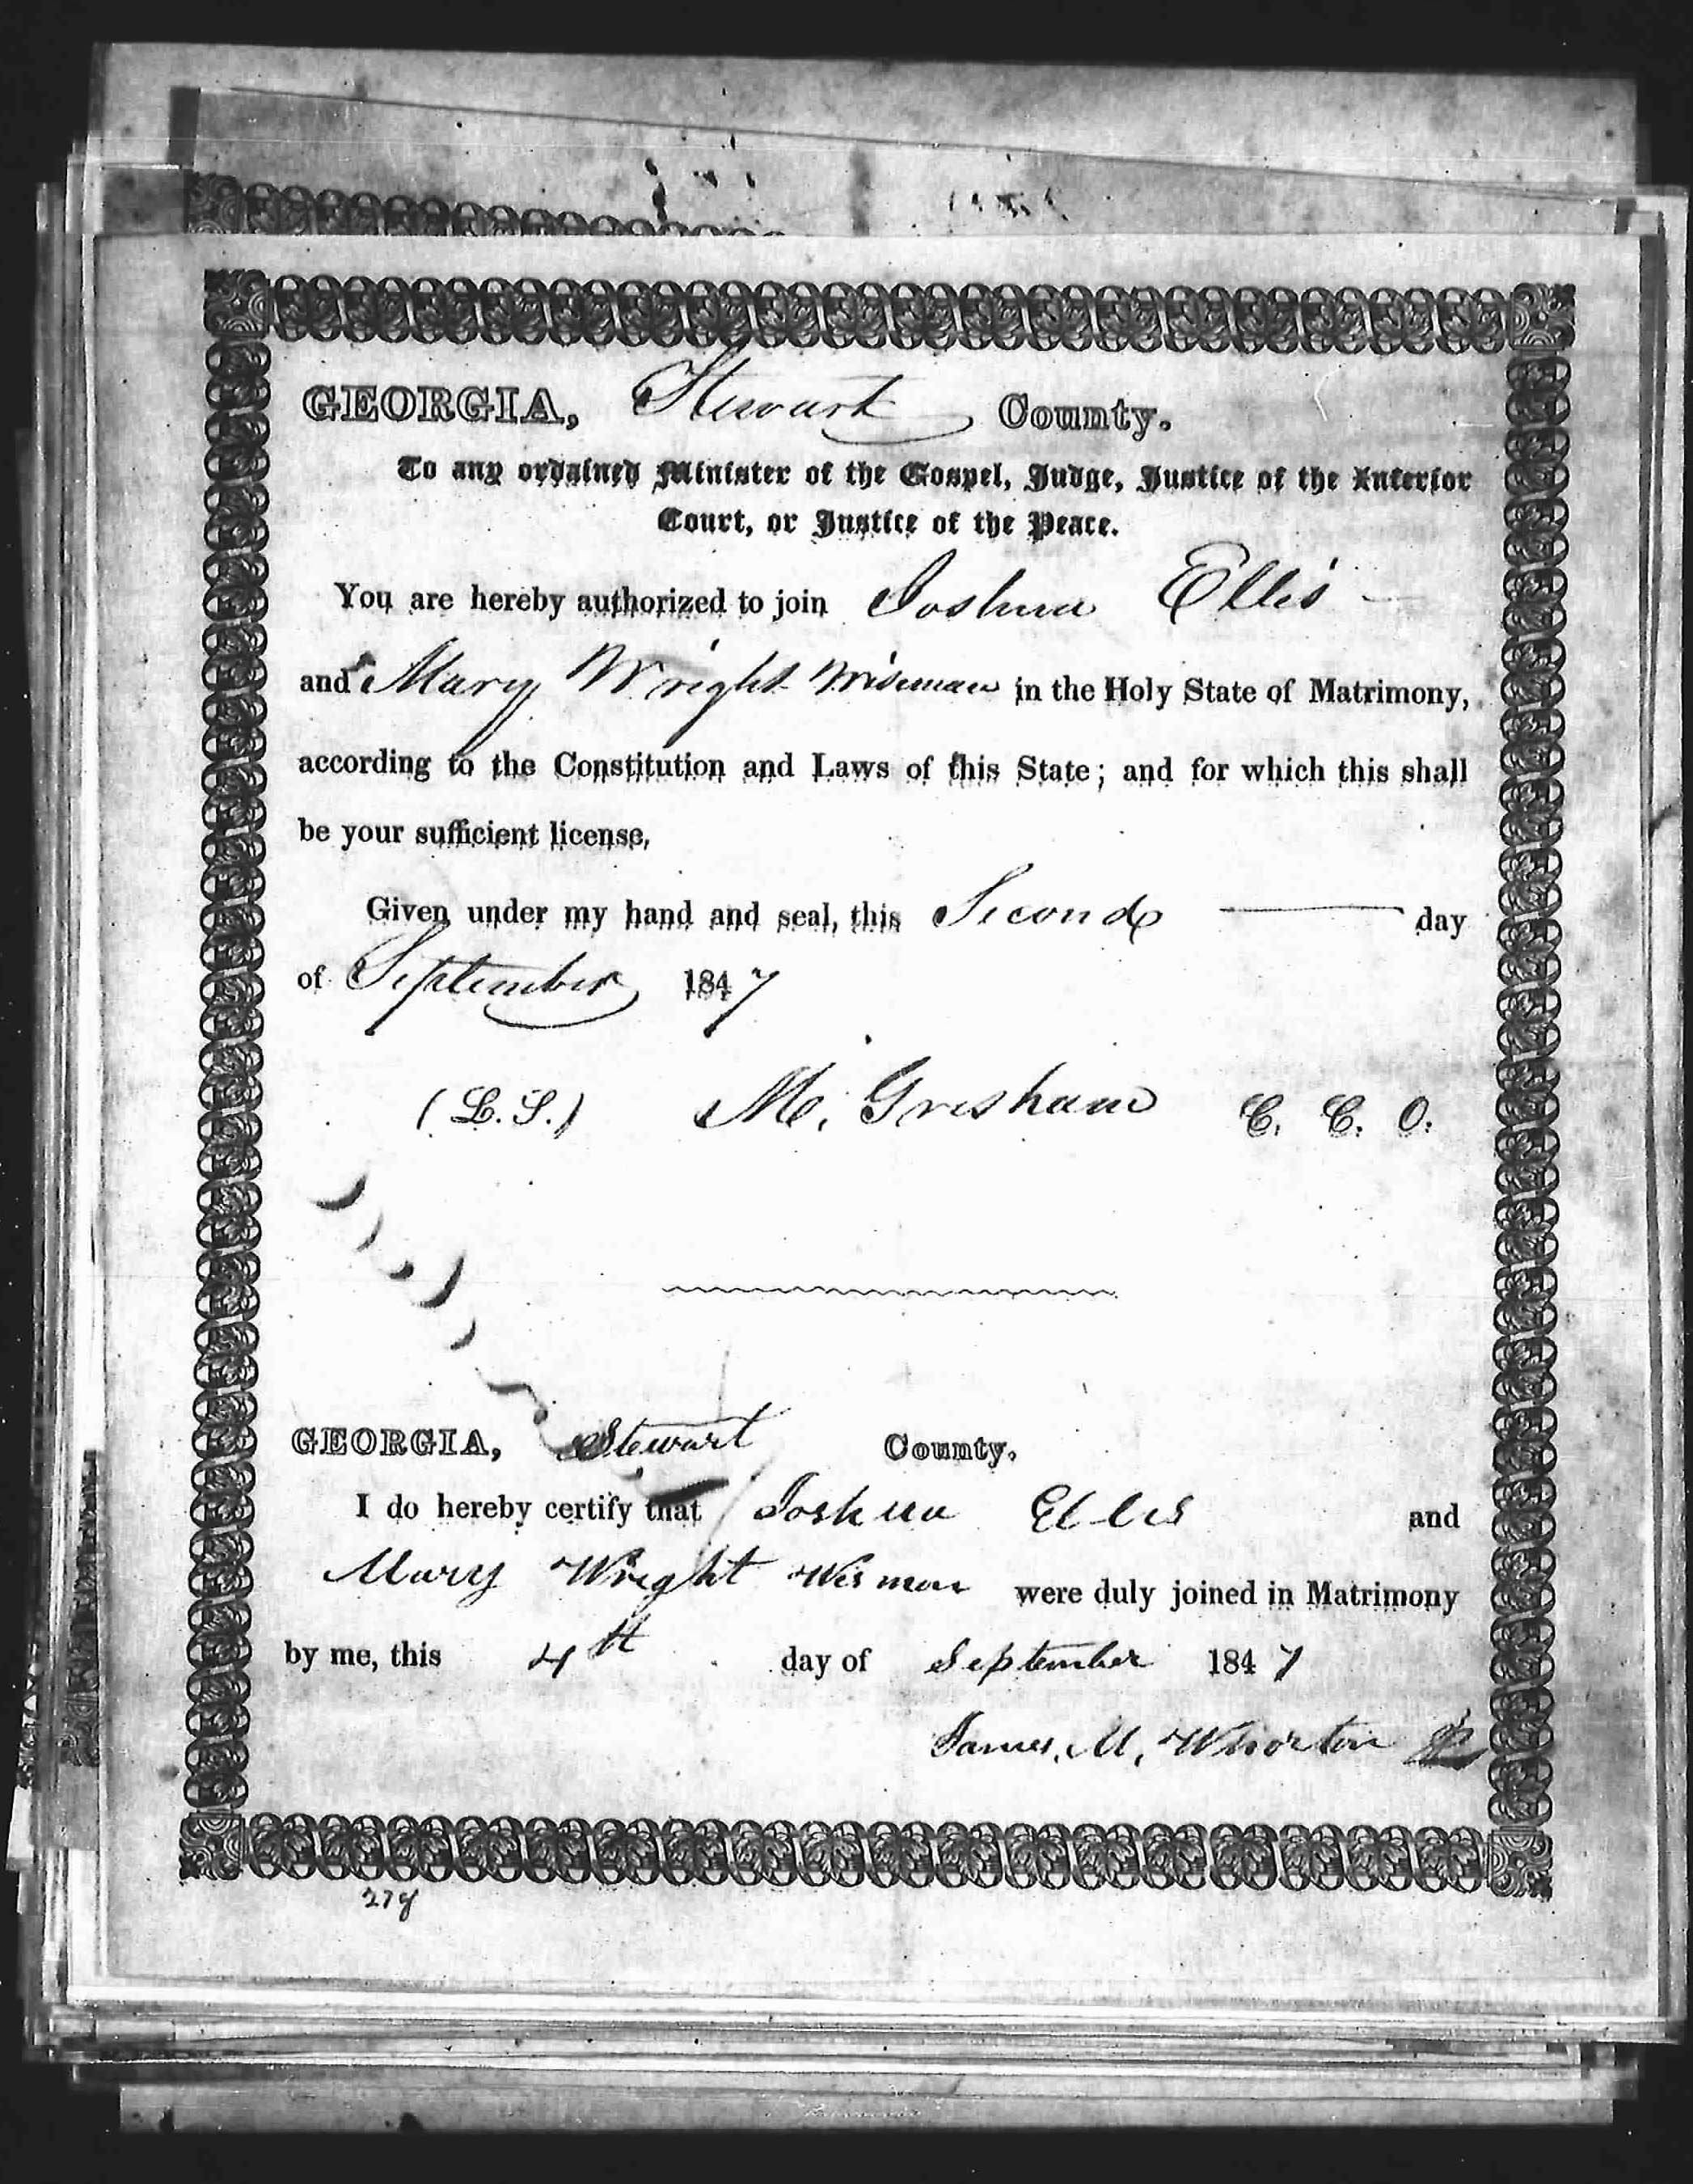 GEORGIA, Stewart County.
To any ordained Minister of the Gospel, Judge, Justice of the Inferior
Court, or Justice of the Peace.
You are hereby authorized to join Joshua Ellis
and Mary Wright Wiseman in the Holy State of Matrimony,
according to the Constitution and Laws of this State; and for which this shall
be your sufficient license,
Given under my hand and seal, this Second day
of September 1847
(L.S.) M. Gresham C. C. O.
GEORGIA, Stewart County.
I do hereby certify that Joshua Ellis and
Mary Wright Wisman were duly joined in Matrimony
by me, this 4th day of September 1847
James, M, Whorton